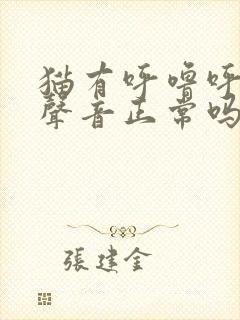 猫有呼噜呼
聲音正常吗
張建金